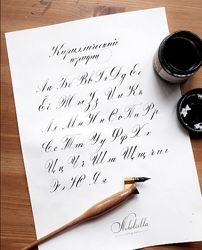 Кириллический
шрифт
Аа Бб Вв Гг Дд Ее
Ёё Жж Зз Ии Кк
Лл Мм Нн Оо Пп Рр
Сс Тт Уу Фф Хх
Цц Чч Шш Щщ ъ ы ь
Ээ Юю Яя